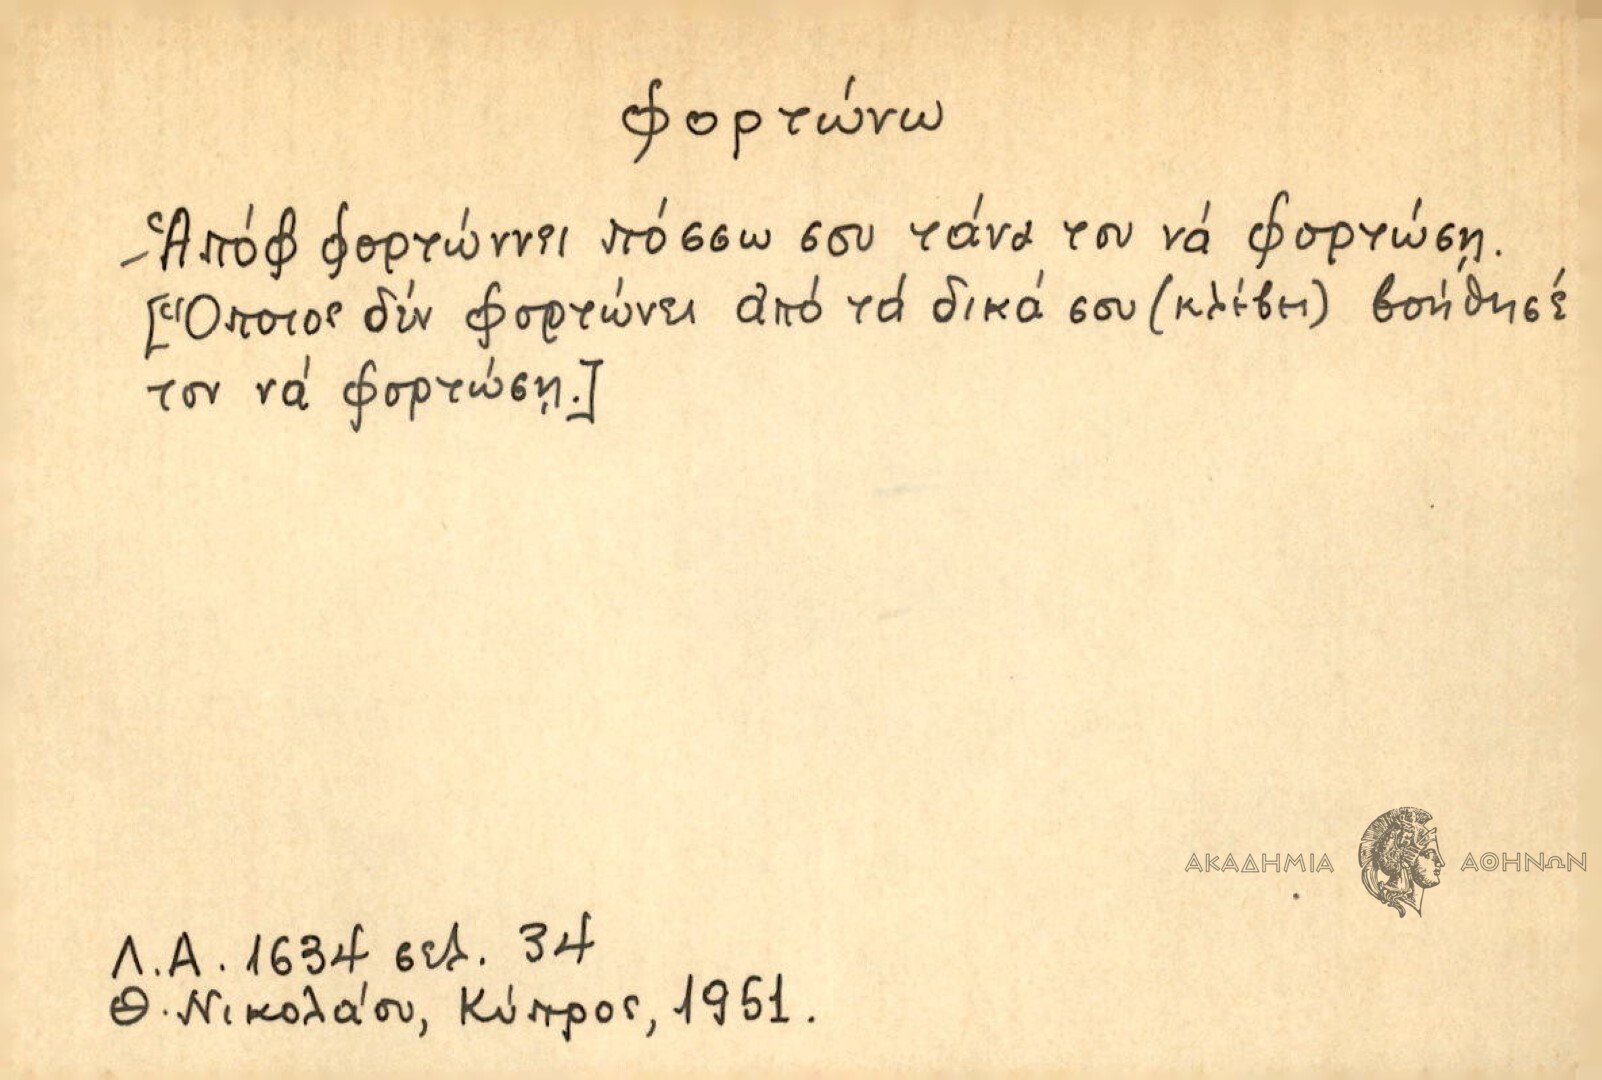 φορτώνω
– Ἀπόβ φορτώννει πόσσω σου τάνα του νά φορτώσῃ.
[Ὅποιος δέν φορτώνει ἀπό τά δικά σου (κλέβει) βοήθησέ
τον νά φορτώσῃ.]
ΑΚΑΔΗΜΙΑ ΑΘΗΝΩΝ
Λ.Α. 1634 σελ. 34
Θ. Νικολάου, Κύπρος, 1951.